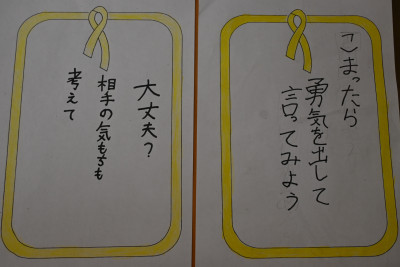 こまったら
勇気を出して
言ってみよう
大丈夫？
相手の気もちも
考えて